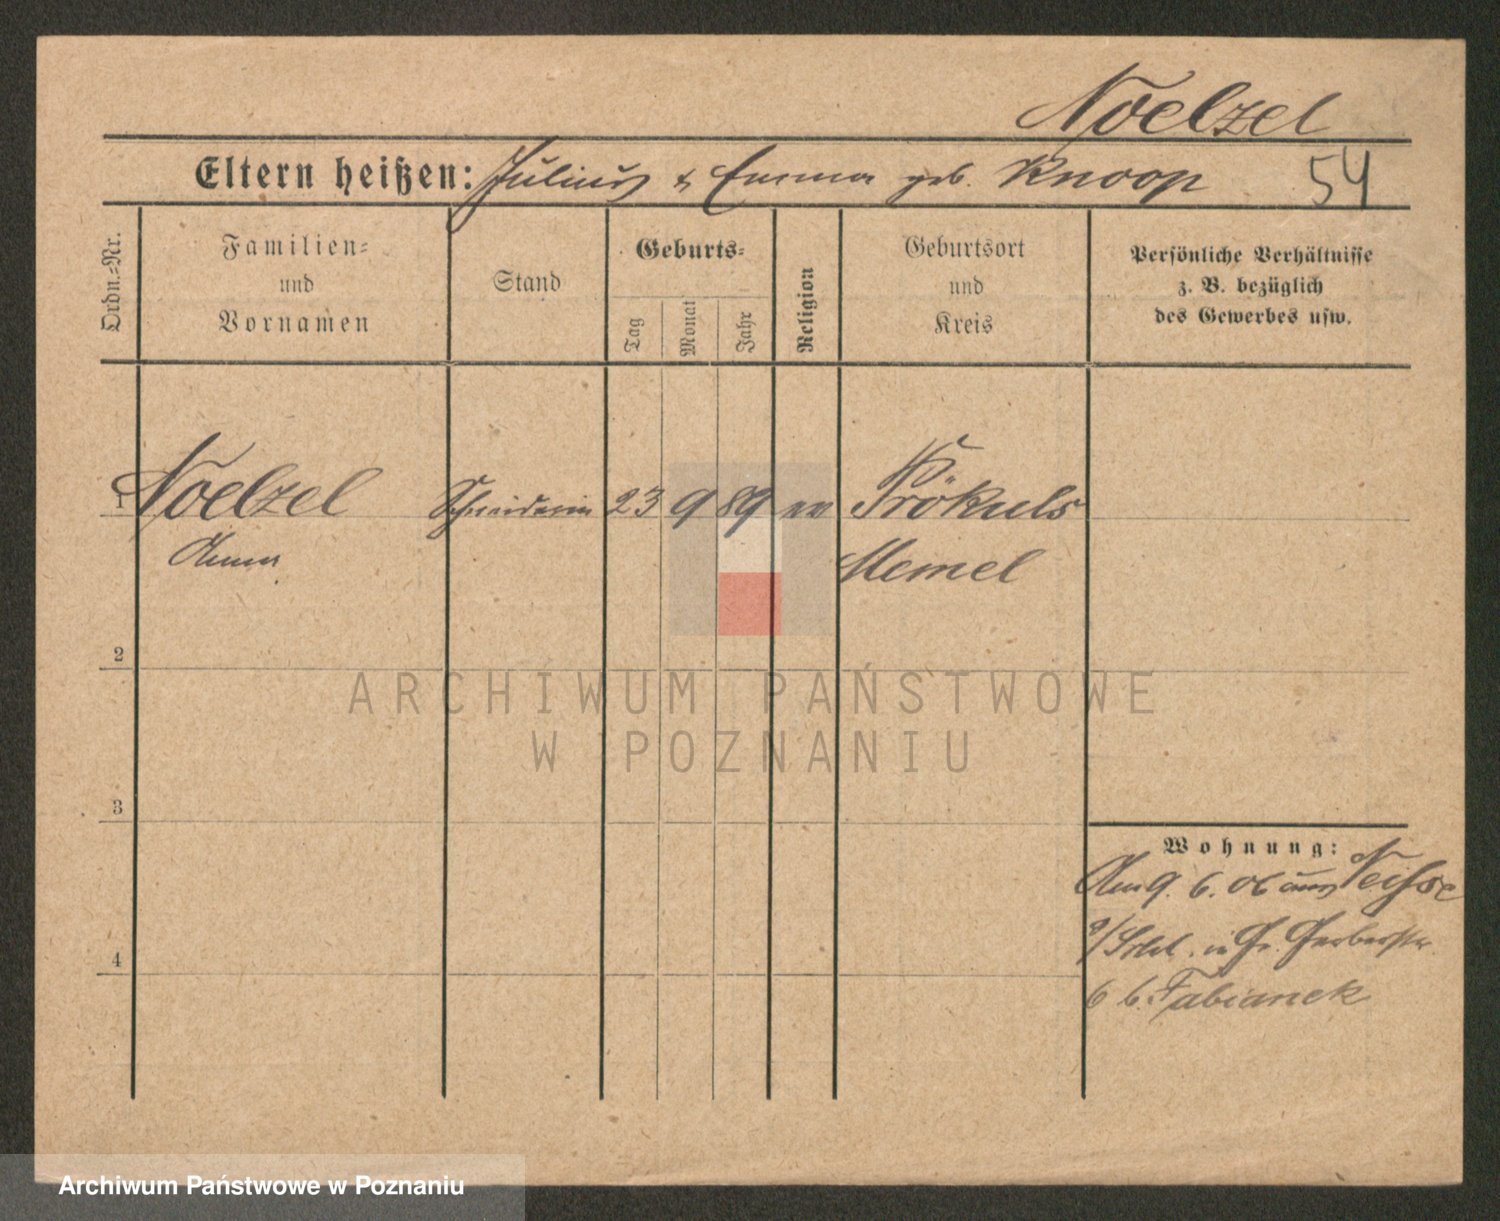 Noelzel
Eltern heißen: Julius & Emma geb. Knoop 54
Ordn.=Nr.
Familien=
und
Vornamen
Stand
Geburts=
Tag
Monat
Jahr
Religion
Geburtsort
und
Kreis
Persönliche Verhältnisse
z. B. bezüglich
des Gewerbes usw.
1 Noelzel Schneiderin 23 9 89 ev Prökuls
Anna Memel
2
ARCHIWUM PAŃSTWOWE
W POZNANIU
3
Wohnung:
Am 9. 6. 06 aus Neisse
in Gr. Gerberstr.
6 b. Fabianek
4
Archiwum Państwowe w Poznaniu